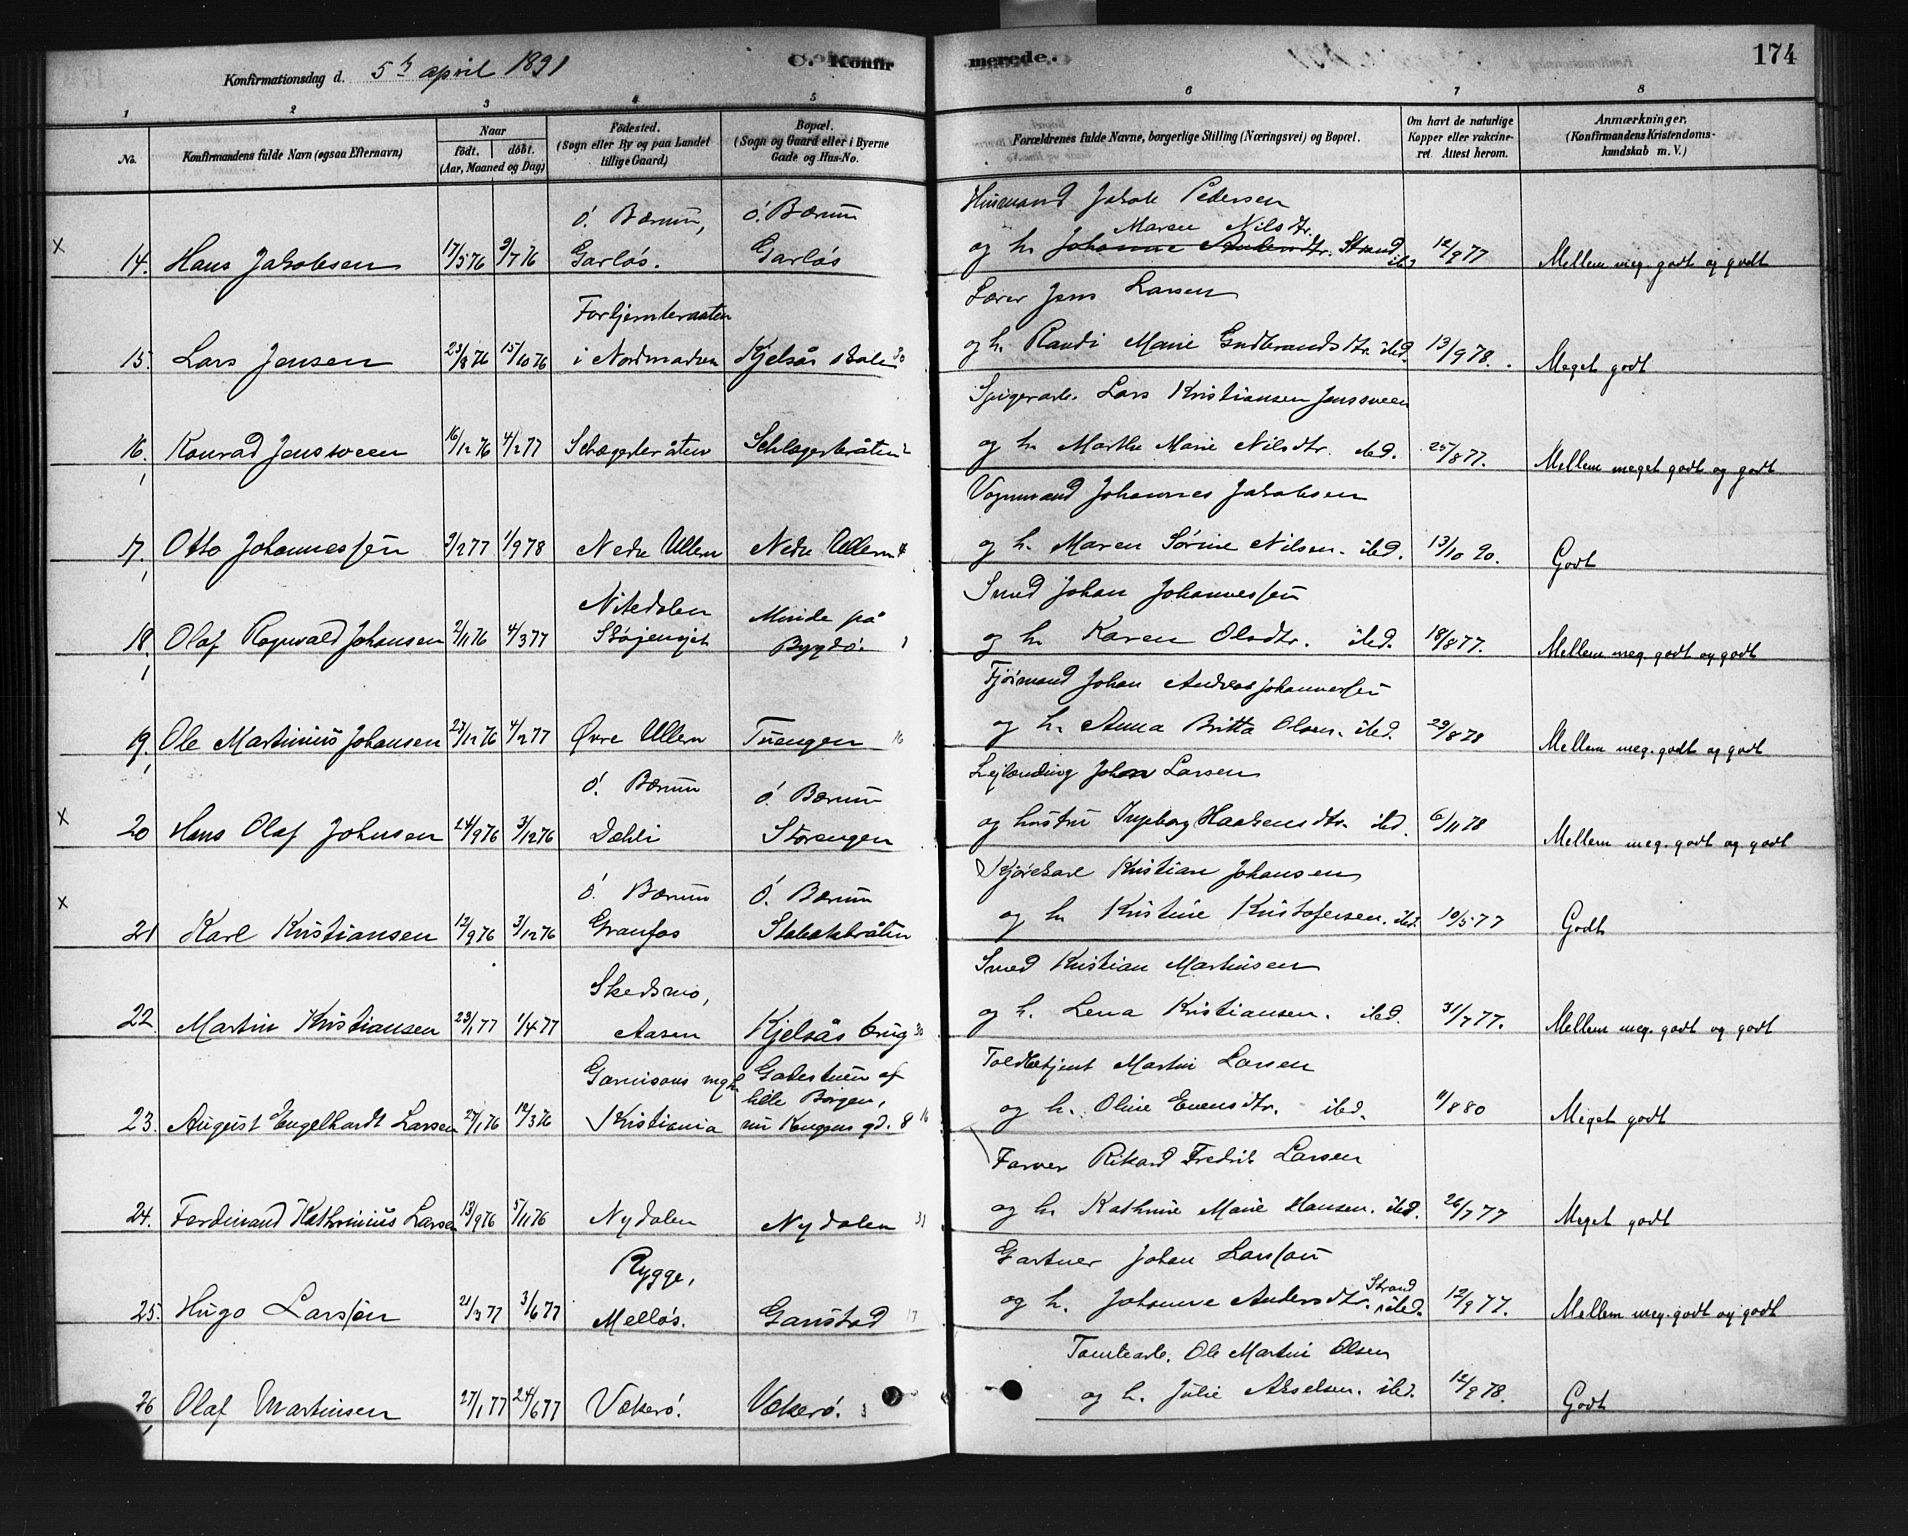 Konfirmationsdag d. 5th april 1891
C. Konfirmerede.
174
1 2 3 4 5 6 7 8
No.
Konfirmandens fulde Navn (ogsaa Efternavn)
Naar
født. døbt.
(Aar, Maaned og Dag)
Fødested.
(Sogn eller By og paa Landet
tillige Gaard)
Bopæl.
(Sogn og Gaard eller i Byerne
Gade og Hus-No.
Forældrenes fulde Navne, borgerlige Stilling (Næringsvei) og Bopæl.
Om havt de naturlige
Kopper eller vakcine-
ret. Attest herom.
Anmærkninger.
(Konfirmandens Kristendoms-
kundskab m. V.)
x 14. Hans Jakobsen 17/5 76 9/7 76
ö. Bærum, Garløs.
ö. Bærum Garløs
Husmand Jakob Pedersen
Maren Nilsdtr.
og h. Johanne Andersdtr. Strand ibd
12/9 77
Mellem meg. godt og godt
15. Lars Jensen 23/8 76 15/10 76
i Nordmarken
Kjelsås skole 30
Lærer Jens Larsen
og h. Randi Marie Gudbrandsdtr. ibd.
13/9 78.
Meget godt
16. Konrad Jensveen 16/12 76 4/2 77
Schlagerbråten 2
Spigerarb. Lars Kristiansen Jensveen
og h. Marthe Marie Nilsdtr. ibd.
25/8 77.
Mellem meget godt og godt
17. Otto Johannessen 2/2 77 1/9 78
Nedre Ullern
Nedre Ullern 4
Vognmand Johannes Jakobsen
og h. Maren Sørine Nilsen. ibd.
13/10 90.
Godt
18. Olaf Ragnvald Johansen 2/11 76 4/3 77
Nitedalen
Minde på Bygdö. 1
Smed Johan Johannessen
og h. Karen Olsdtr. ibd.
18/8 77.
Mellem meg. godt og godt
19. Ole Martinius Johansen 27/12 76 4/2 77
Øvre Ullern
Tuengen 16
Johan Andreas Johannessen
og h. Anna Britta Olsen. ibd.
29/8 78
Mellem meg. godt og godt
x 20 Hans Olaf Johnsen 24/9 76 3/12 76
ö. Bærum Dehli
ö. Bærum Storengen
Lejlænding Johan Larsen
og hustru Ingeborg Haakensdtr. ibd.
6/11 78
Mellem meg. godt og godt
x 21 Karl Kristiansen 12/9 76 3/12 76
ö. Bærum Granfos
ö. Bærum Stabækbråten
Kjørekarl Kristian Johansen,
og h. Kristine Kristofersen. ibd.
10/5 77
Godt
22. Martin Kristiansen 23/1 77 1/4 77
Skedsmo, Aasen
Kjelsås brug 30
Smed Kristian Martinsen
og h. Lena Kristiansen. ibd.
31/7 77.
Mellem meg. godt og godt
23. August Engelhardt Larsen 27/1 76 12/3 76
Garnisons mgh. Kristiania
Gadestuen af lille Borgen, nu Kongens gd. 8 16
Toldbetjent Martin Larsen
og h. Oline Evensdtr. ibd.
11/8 80
Meget godt
24. Ferdinand Kathrinius Larsen 13/9 76 5/11 76
Nydalen
Nydalen 31
Farver Rikard Fredrik Larsen
og h. Kathrine Marie Hansen. ibd.
26/7 77
Meget godt
25. Hugo Larssen 21/3 77 3/6 77
Rygge, Melløs.
Gaustad 17
Gartner Johan Larsson
og h. Johanne Andersdtr. Strand ibd.
12/9 77.
Mellem meg. godt og godt
26 Olaf Martinsen 27/1 77 24/6 77
Vækerö.
Vækerö. 3
Tomtearb. Ole Martin Olsen
og h. Julie Akselsen. ibd.
12/9 78.
Godt